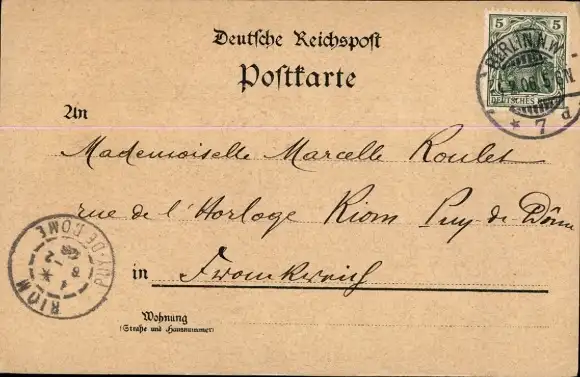 Deutsche Reichspost
Postkarte
5 5
BERLIN N.W.
DEUTSCHES REICH
* 7 d
An
Mademoiselle Marcelle Roulet
rue de l'Horloge Riom Puy de Dôme
in Frankreich
RIOM
PUY-DE-DOME
Wohnung
(Straße und Hausnummer)